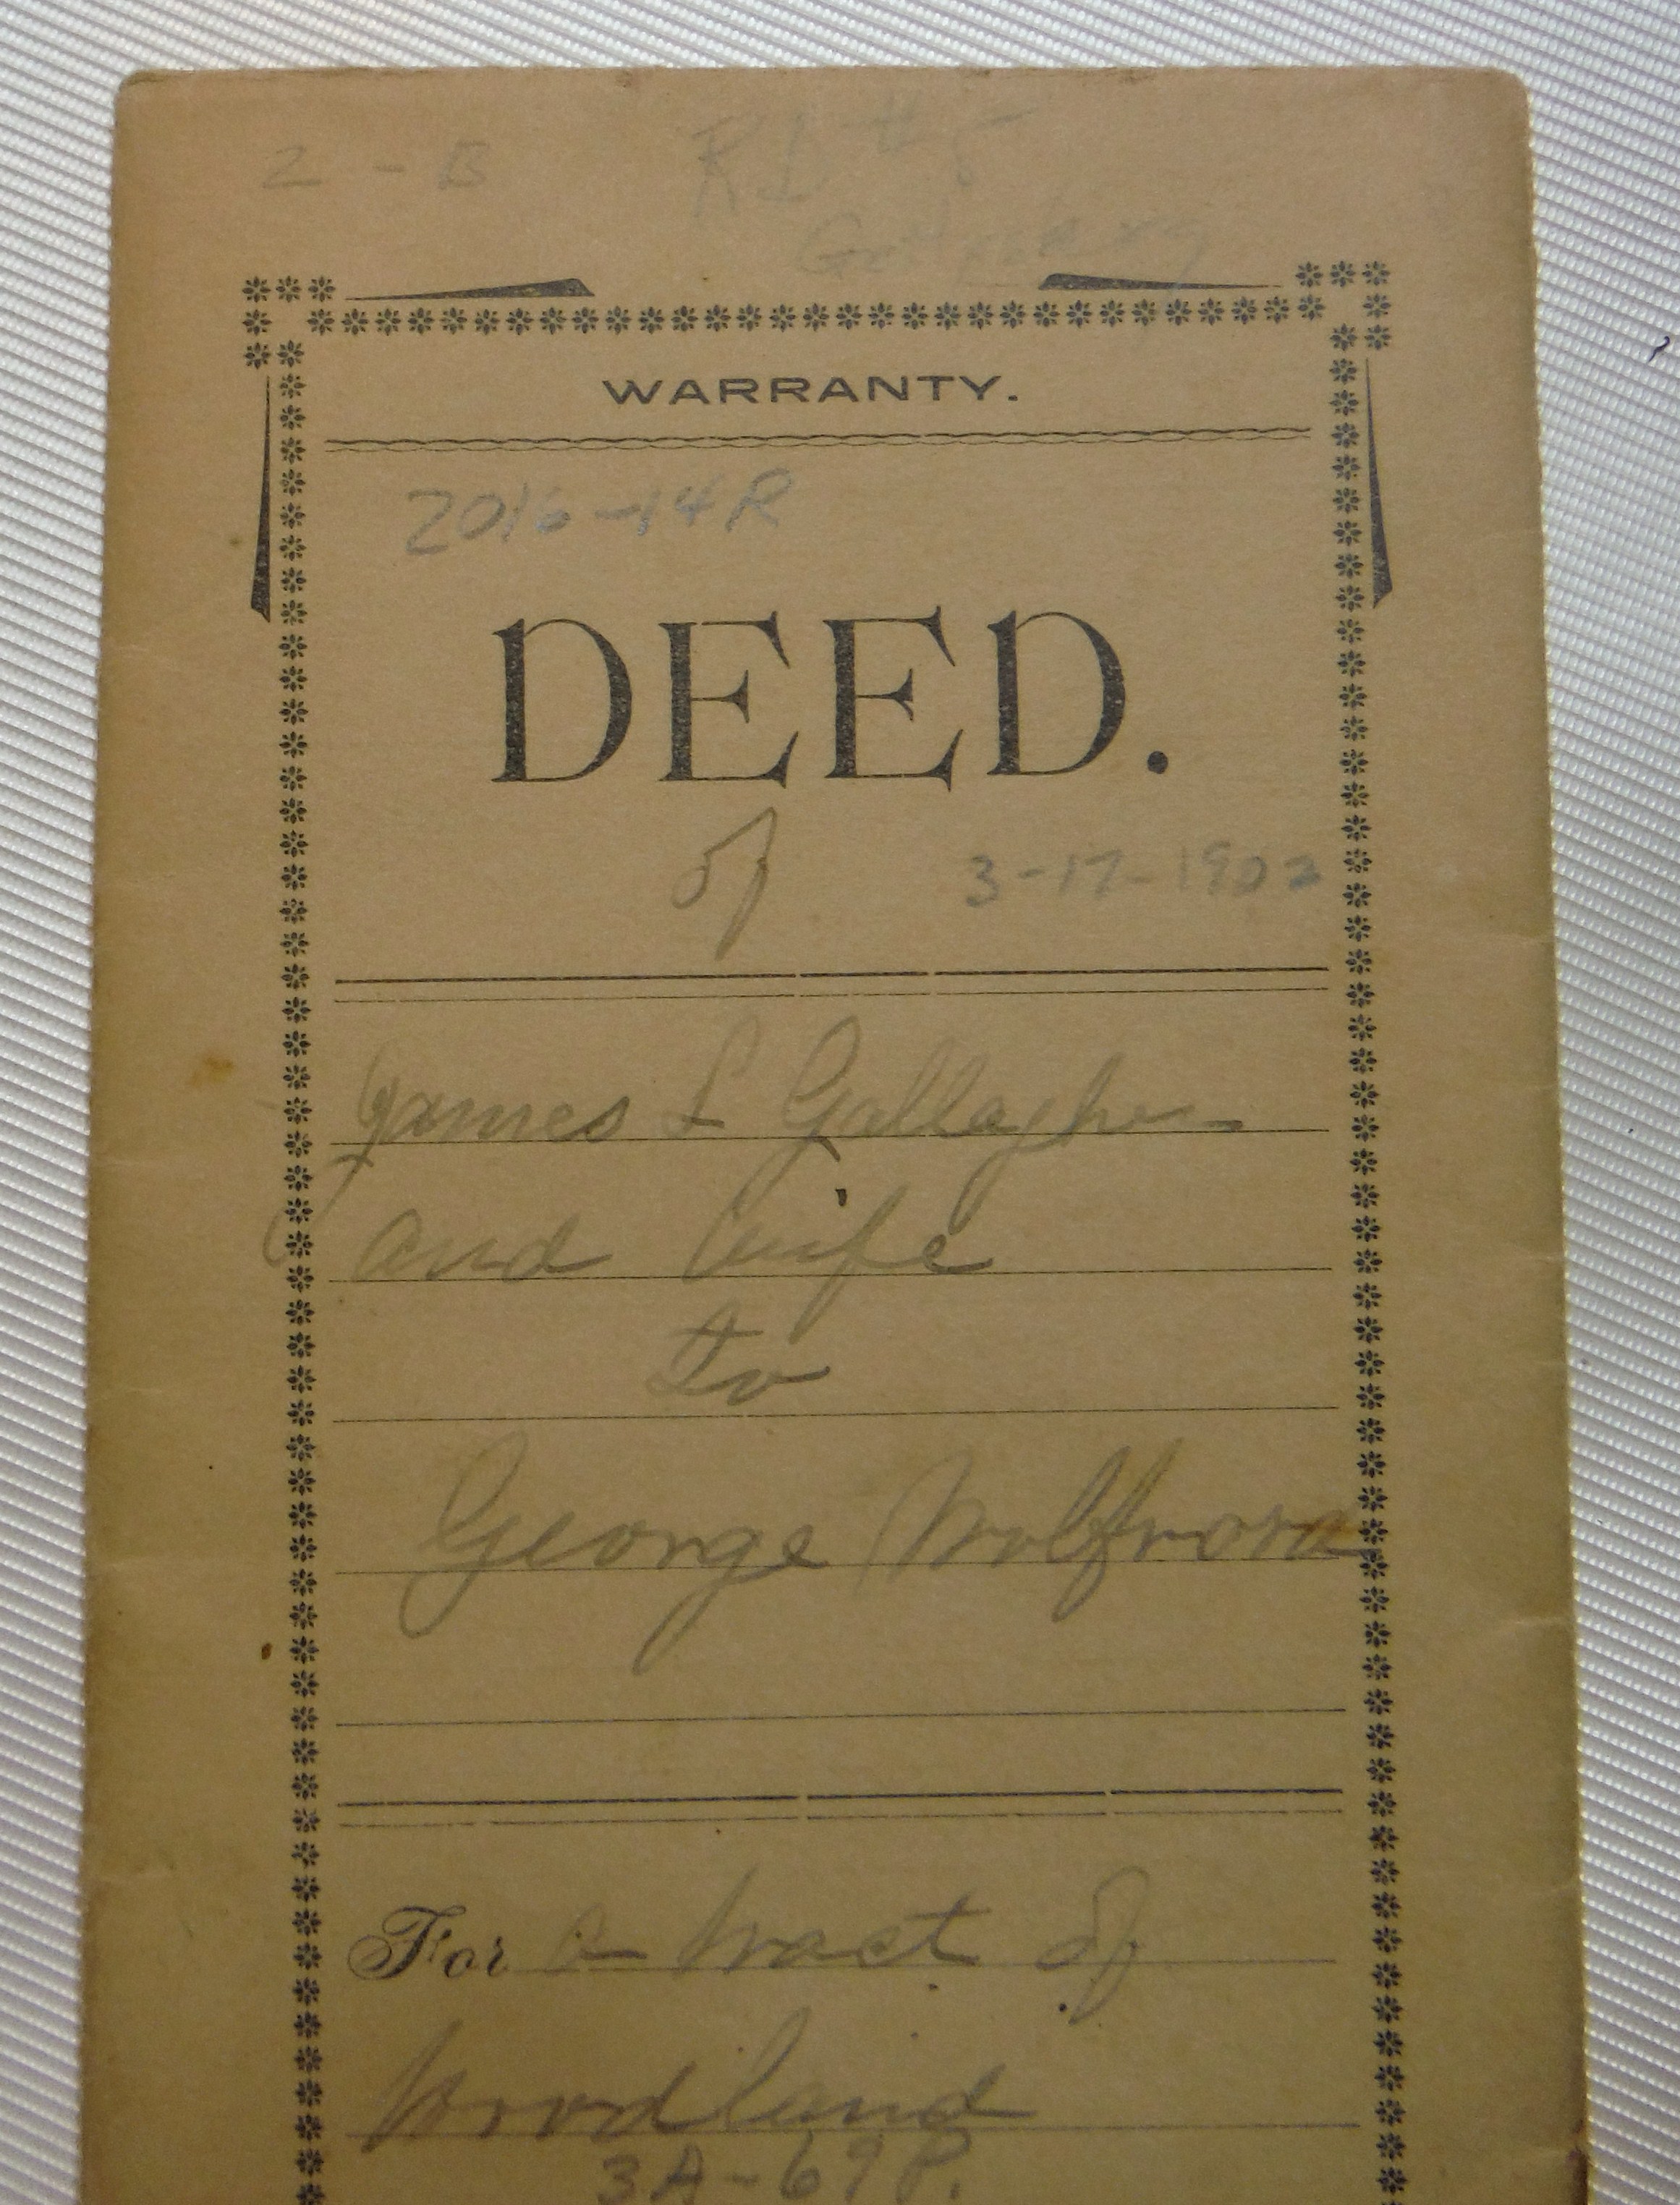 2 - B
RD #5
WARRANTY.
2016-14R
DEED.
of
3-17-1902
James L Gallagher
and Wife
to
George
For a tract of
Woodland
3A-69P.